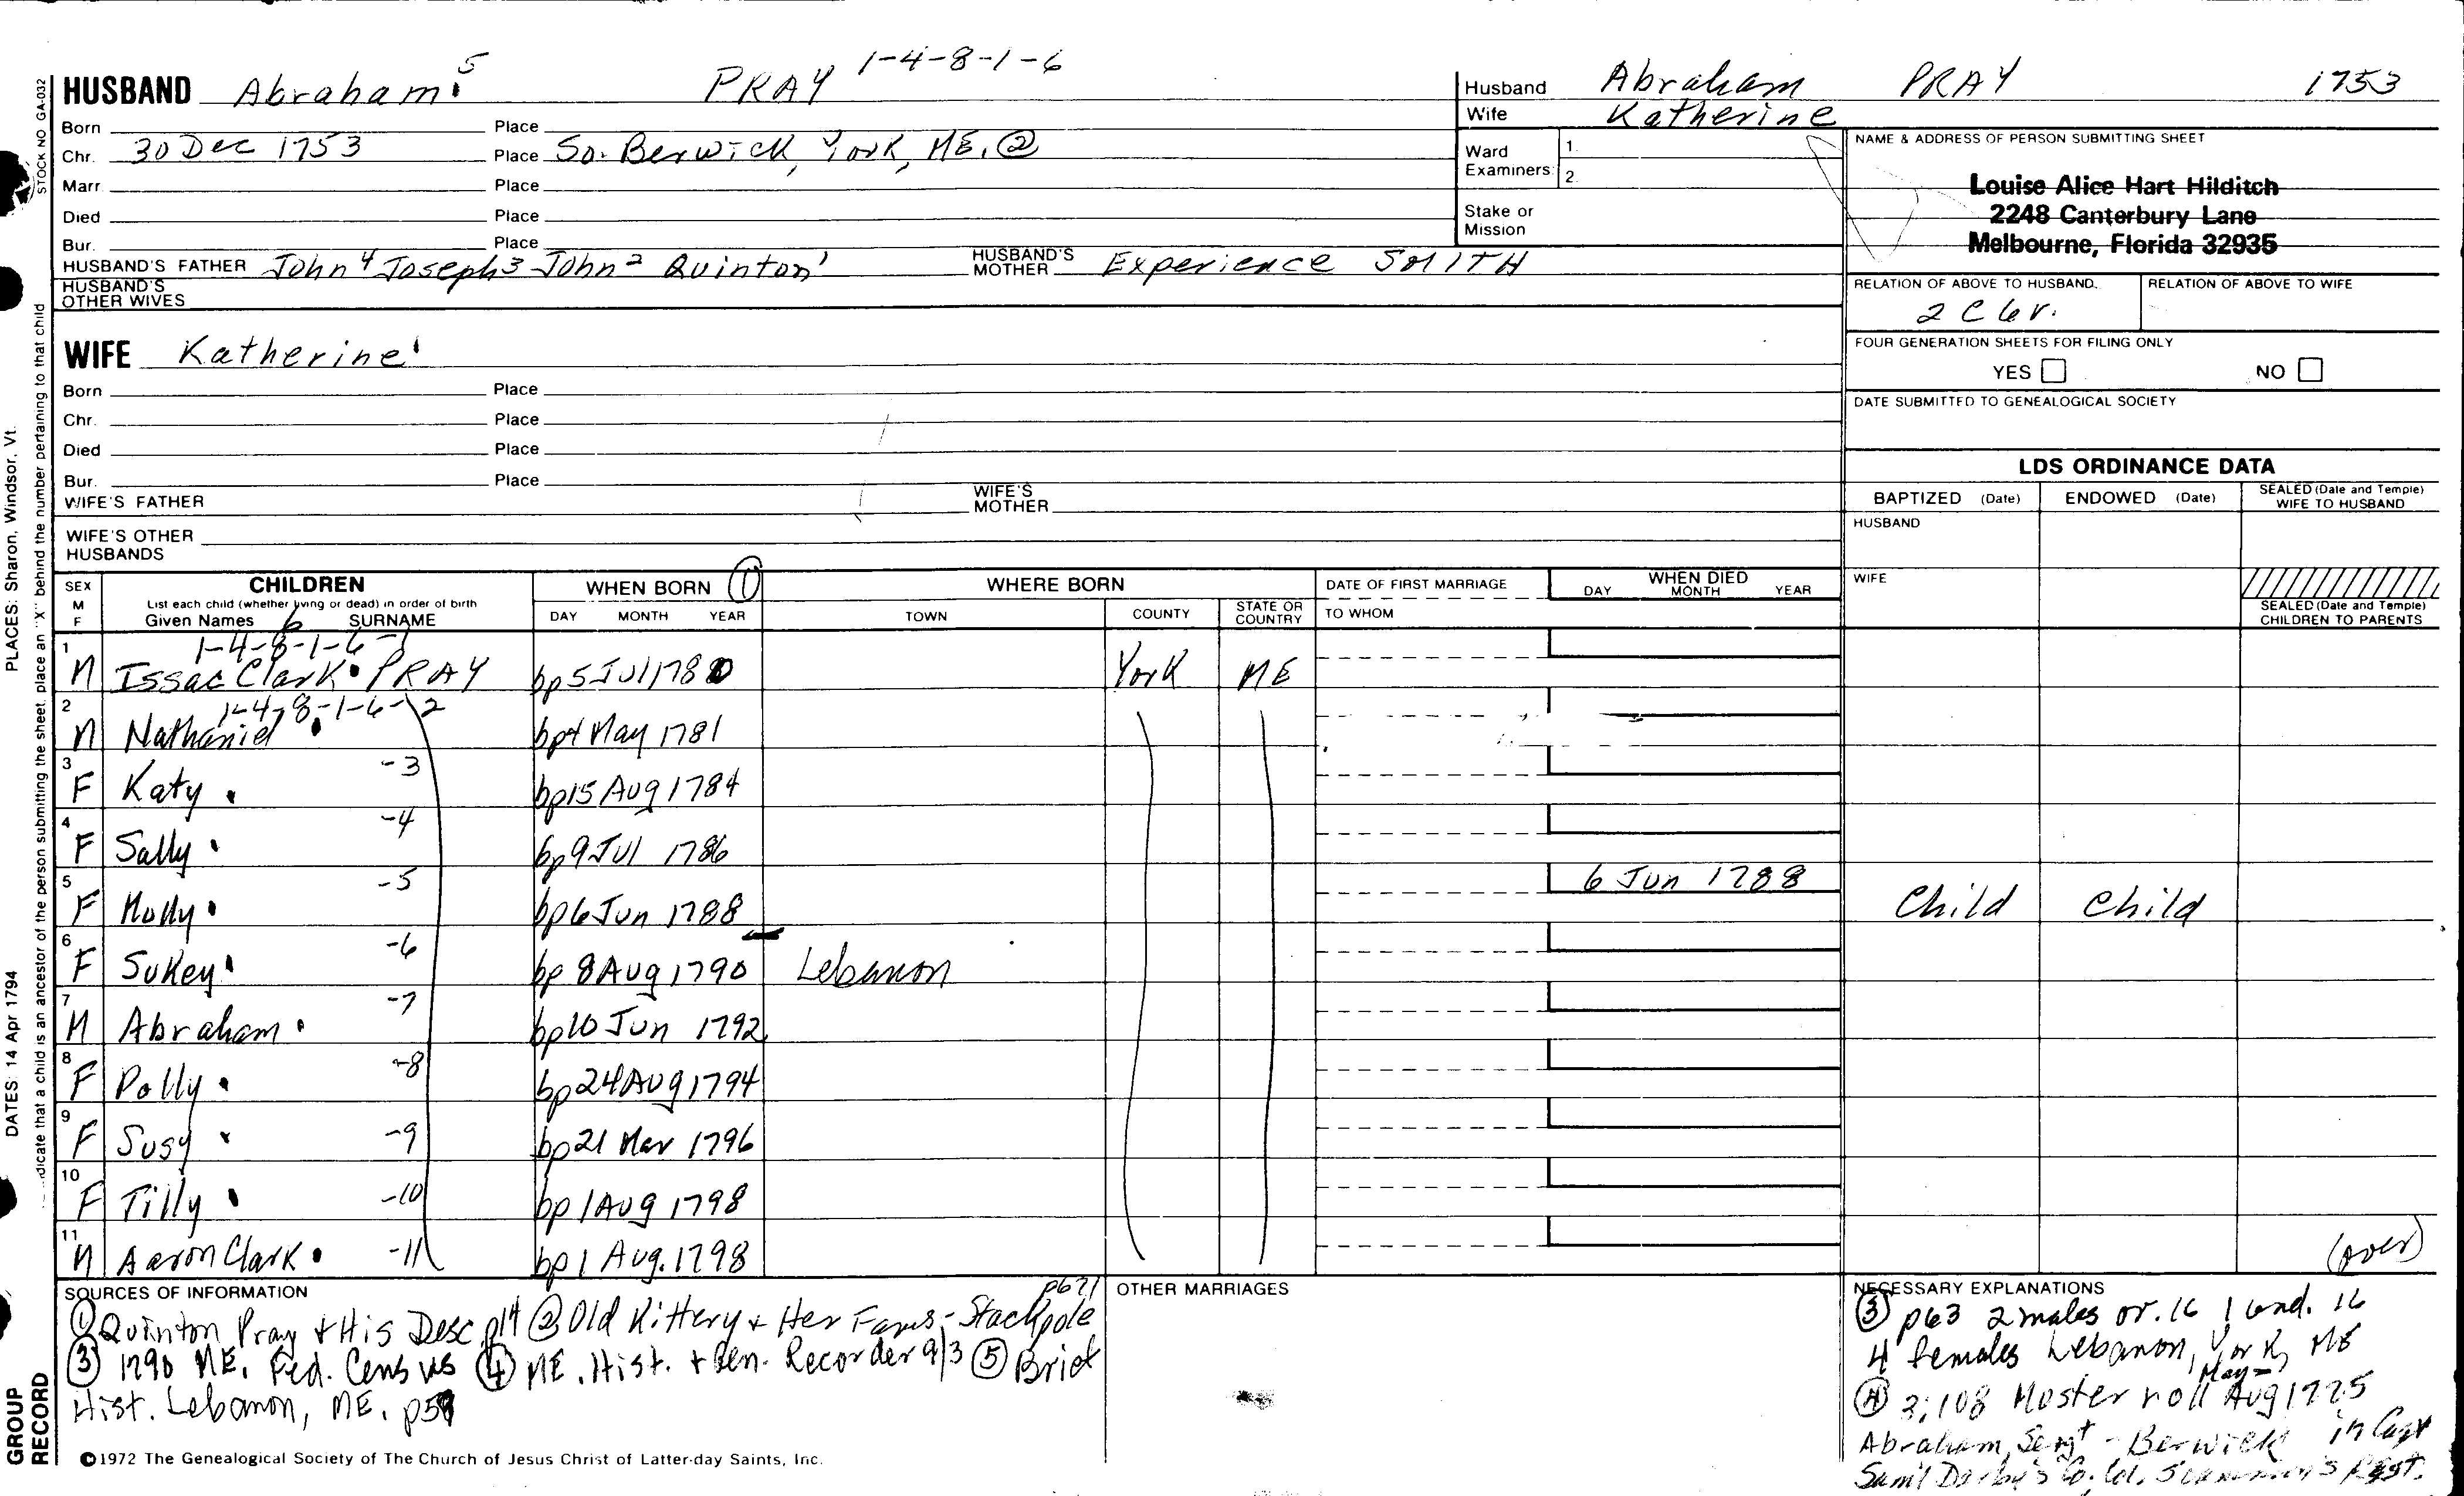 1-4-8-1-6
HUSBAND Abraham 5 PRAY
Born Place
Chr. 30 Dec 1753 Place So. Berwick, York, ME, ②
Marr. Place
Died Place
Bur. Place
HUSBAND'S FATHER John 4 Joseph 3 John 2 Quinton 1 HUSBAND'S MOTHER Experience SMITH
HUSBAND'S OTHER WIVES
Husband Abraham PRAY 1753
Wife Katherine
Ward Examiners: 1. 2.
Stake or Mission
NAME & ADDRESS OF PERSON SUBMITTING SHEET
Louise Alice Hart Hilditch
2248 Canterbury Lane
Melbourne, Florida 32935
RELATION OF ABOVE TO HUSBAND RELATION OF ABOVE TO WIFE
2 C 6 r.
FOUR GENERATION SHEETS FOR FILING ONLY
YES NO
DATE SUBMITTED TO GENEALOGICAL SOCIETY
WIFE Katherine
Born Place
Chr. Place
Died Place
Bur. Place
WIFE'S FATHER WIFE'S MOTHER
WIFE'S OTHER HUSBANDS
LDS ORDINANCE DATA
BAPTIZED (Date) ENDOWED (Date) SEALED (Date and Temple) WIFE TO HUSBAND
HUSBAND
WIFE
SEALED (Date and Temple) CHILDREN TO PARENTS
SEX M F CHILDREN WHEN BORN ① WHERE BORN DATE OF FIRST MARRIAGE WHEN DIED
List each child (whether living or dead) in order of birth
Given Names 6 SURNAME DAY MONTH YEAR TOWN COUNTY STATE OR COUNTRY TO WHOM DAY MONTH YEAR
1-4-8-1-6-1
1 M Issac Clark PRAY bp 5 Jul 1780 York ME
1-4-8-1-6-2
2 M Nathaniel bp 4 May 1781
3 F Katy -3 bp 15 Aug 1784
4 F Sally -4 bp 9 Jul 1786
5 F Molly -5 bp 6 Jun 1788 6 Jun 1788 Child Child
6 F Sukey -6 bp 8 Aug 1790 Lebanon
7 M Abraham -7 bp 10 Jun 1792
8 F Polly -8 bp 24 Aug 1794
9 F Susy -9 bp 21 Mar 1796
10 F Tilly -10 bp 1 Aug 1798
11 M Aaron Clark -11 bp 1 Aug. 1798
(over)
SOURCES OF INFORMATION p671
① Quinton Pray + His Desc p14 ② Old Kittery + Her Fams - Stackpole
③ 1790 ME. Fed. Census ④ ME. Hist. + Gen. Recorder 9/3 ⑤ Brief
Hist. Lebanon, ME. p59
OTHER MARRIAGES
NECESSARY EXPLANATIONS
③ p63 2 males ov. 16 1 und. 16
4 females Lebanon, York, ME
May-
Ⓐ 3;108 Muster roll Aug 1775
Abraham, Sergt - Berwick in Capt
Sam'l Darby's Co. Col. Regt.
©1972 The Genealogical Society of The Church of Jesus Christ of Latter-day Saints, Inc.
STOCK NO GA-032
PLACES: Sharon, Windsor, Vt.
DATES: 14 Apr 1794
indicate that a child is an ancestor of the person submitting the sheet, place an "X" behind the number pertaining to that child
GROUP RECORD